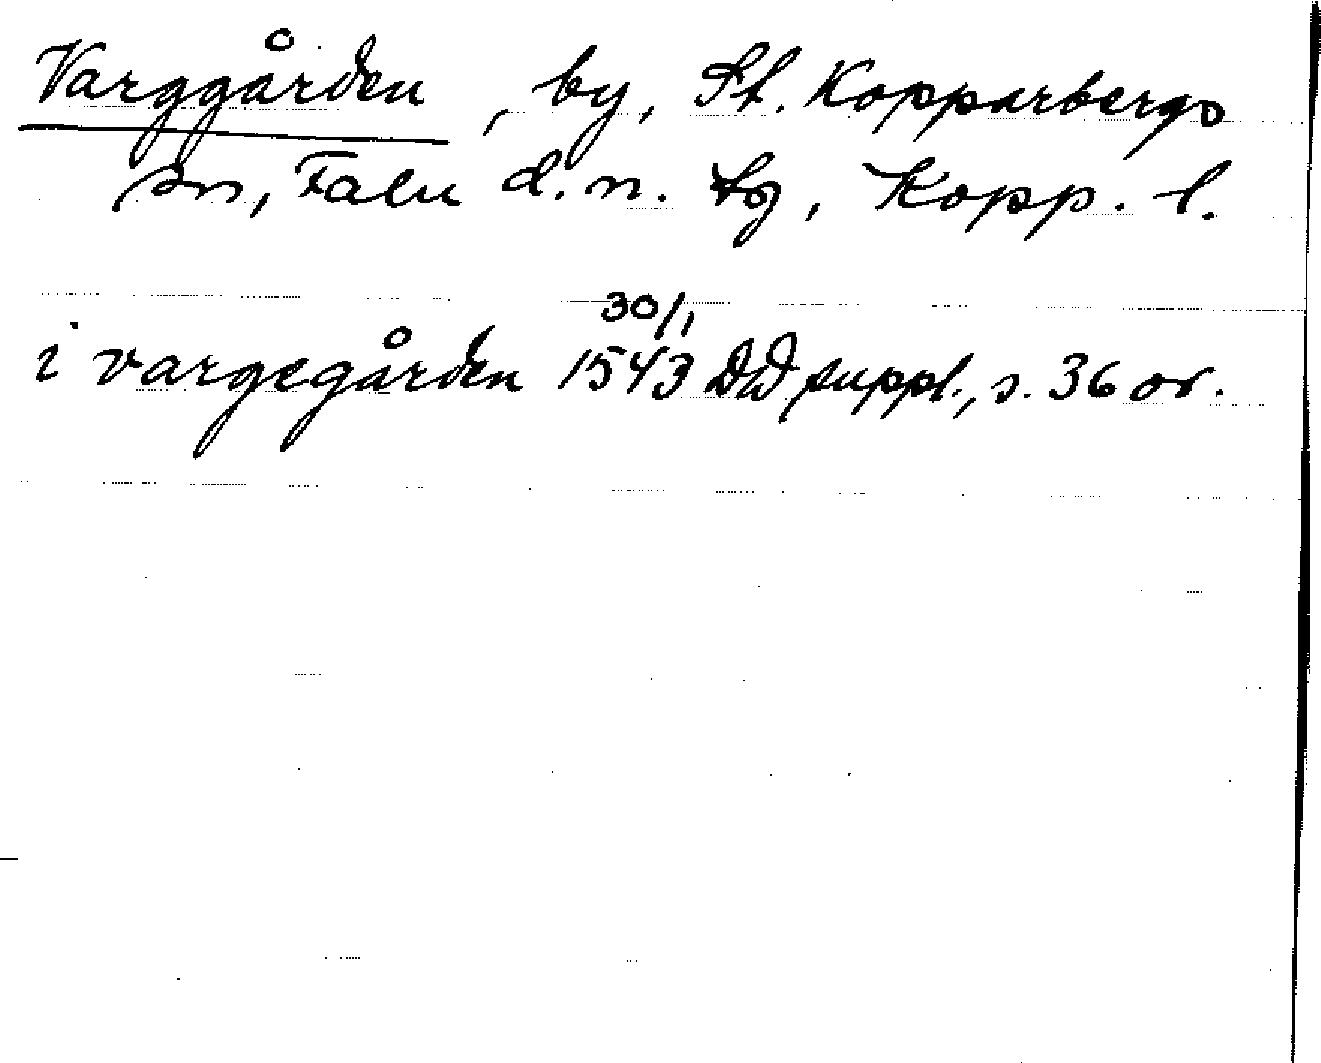 Varggården, by, St. Kopparbergs
sn, Falu d.n. tg, Kopp. l.
30/1
i vargegården 1543 DD suppl., s. 36 or.